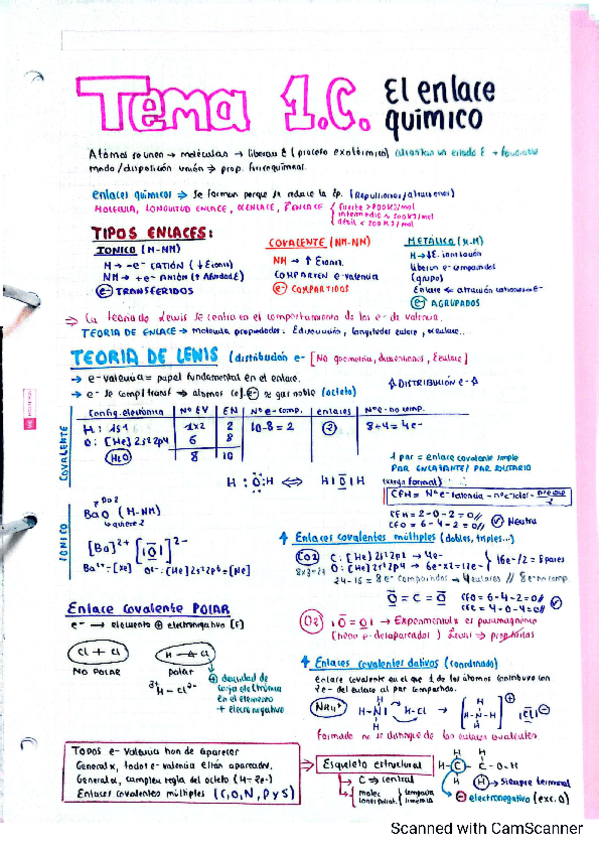 Tema 1.C. El enlace químico
Átomos se unen → moléculas → liberan E (proceso exotérmico) alcanzan un estado E + favorable
modo/disposición unión → prop. fisicoquímicas.
enlaces químicos → Se forman porque se reduce la Ep. (Repulsiones/atracciones)
MOLÉCULA, LONGITUD ENLACE, ∝ENLACE, EENLACE { fuerte >800KJ/mol
intermedio ≈ 500KJ/mol
débil < 200 KJ/mol
TIPOS ENLACES:
IONICO (M-NM)
M → -e- CATIÓN (↓Eioni.)
NM → +e- ANIÓN (↑ Afinidad E)
e- TRANSFERIDOS
COVALENTE (NM-NM)
NM → ↑ Eioni.
COMPARTEN e- valencia
e- COMPARTIDOS
METÁLICO (M-M)
M → ↓E. ionización
liberan e- compartidos
(grupo)
Enlace ← atracción cationes + E-
e- AGRUPADOS
⇒ La teoría de Lewis se centra en el comportamiento de los e- de valencia.
TEORIA DE ENLACE → molécula propiedades: Edisociación, longitudes enlace, ∝enlace..
TEORIA DE LEWIS (distribución e- [No geometría, dimensiones, Eenlace]
→ e- valencia = papel fundamental en el enlace.
→ e- se comp/transf → átomos c.e. e- de gas noble (octeto)
DISTRIBUCIÓN e-
COVALENTE
Config. electónica Nº EV EN Nº e- comp. enlaces Nº e- no comp.
H: 1s1 1x2 2 10-8=2 2 8-4=4e-
O: [He] 2s2 2p4 6 8
H2O 8 10
H :Ö: H ⇔ H I O I H
1 par = enlace covalente simple
PAR ENLAZANTE/ PAR SOLITARIO
(carga formal)
CFH = Nº e- valencia - nº e- solit - nº e- comp / 2
CFH = 2-0-2=0//
CFO = 6-4-2=0// Neutra
IONICO
BaO (M-NM)
[Ba]2+ [IOI]2-
Ba2+ = [Xe] O2-: [He]2s2 2p6 = [Ne]
Enlaces covalentes múltiples (dobles, triples...)
CO2 C: [He] 2s2 2p2 → 4e-
8x3=24 O: [He] 2s2 2p4 → 6e- x2 = 12e- 16e-/2 = 8 pares
24-16 = 8e- compartidos → 4 enlaces // 8e- no comp.
O = C = O CFO = 6-4-2=0//
CFC = 4-0-4=0//
O2 IO=OI → Experimental x es paramagnético
(tiene e- desapareados) Lewis → propiedades
Enlace covalente POLAR
e- → elemento ⊕ electronegativo (F)
Cl + Cl
NO POLAR
H → Cl
polar
δ+ H - Cl δ-
⊕ densidad de
carga electrónica
en el elemento
+ electronegativo
Enlaces covalentes dativos (coordinado)
Enlace covalente en el que 1 de los átomos contribuye con
2e- del enlace al par compartido.
NH4+ H-N I H-Cl → [H-N-H]⊕ ICl I⊖
Formado no se distingue de los enlaces covalentes
TODOS e- valencia han de aparecer
General x, todos e- valencia están apareados.
General x, cumplen regla del octeto (H=2e-)
Enlaces covalentes múltiples (C,O,N,P y S)
Esqueleto estructural
→ C → central
→ molec. iones poliat. { compacta simétrica
H-C-C-O-H
H → Siempre terminal
⊖ electronegativo (exc. O)
Scanned with CamScanner